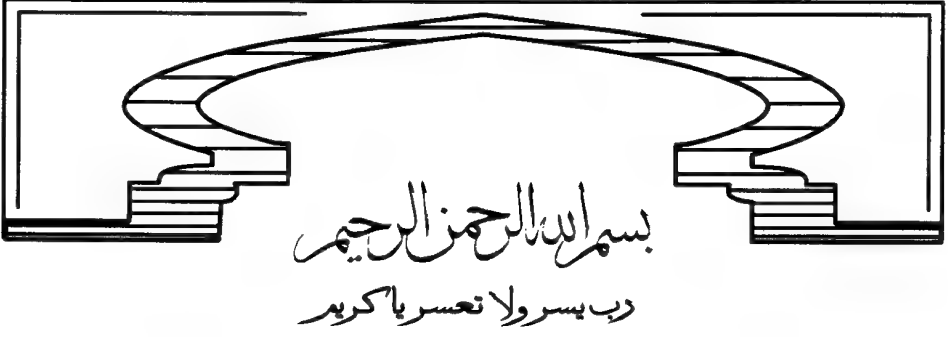 بسم الله الرحمن الرحيم
رب يسر ولا تعسر يا كريم